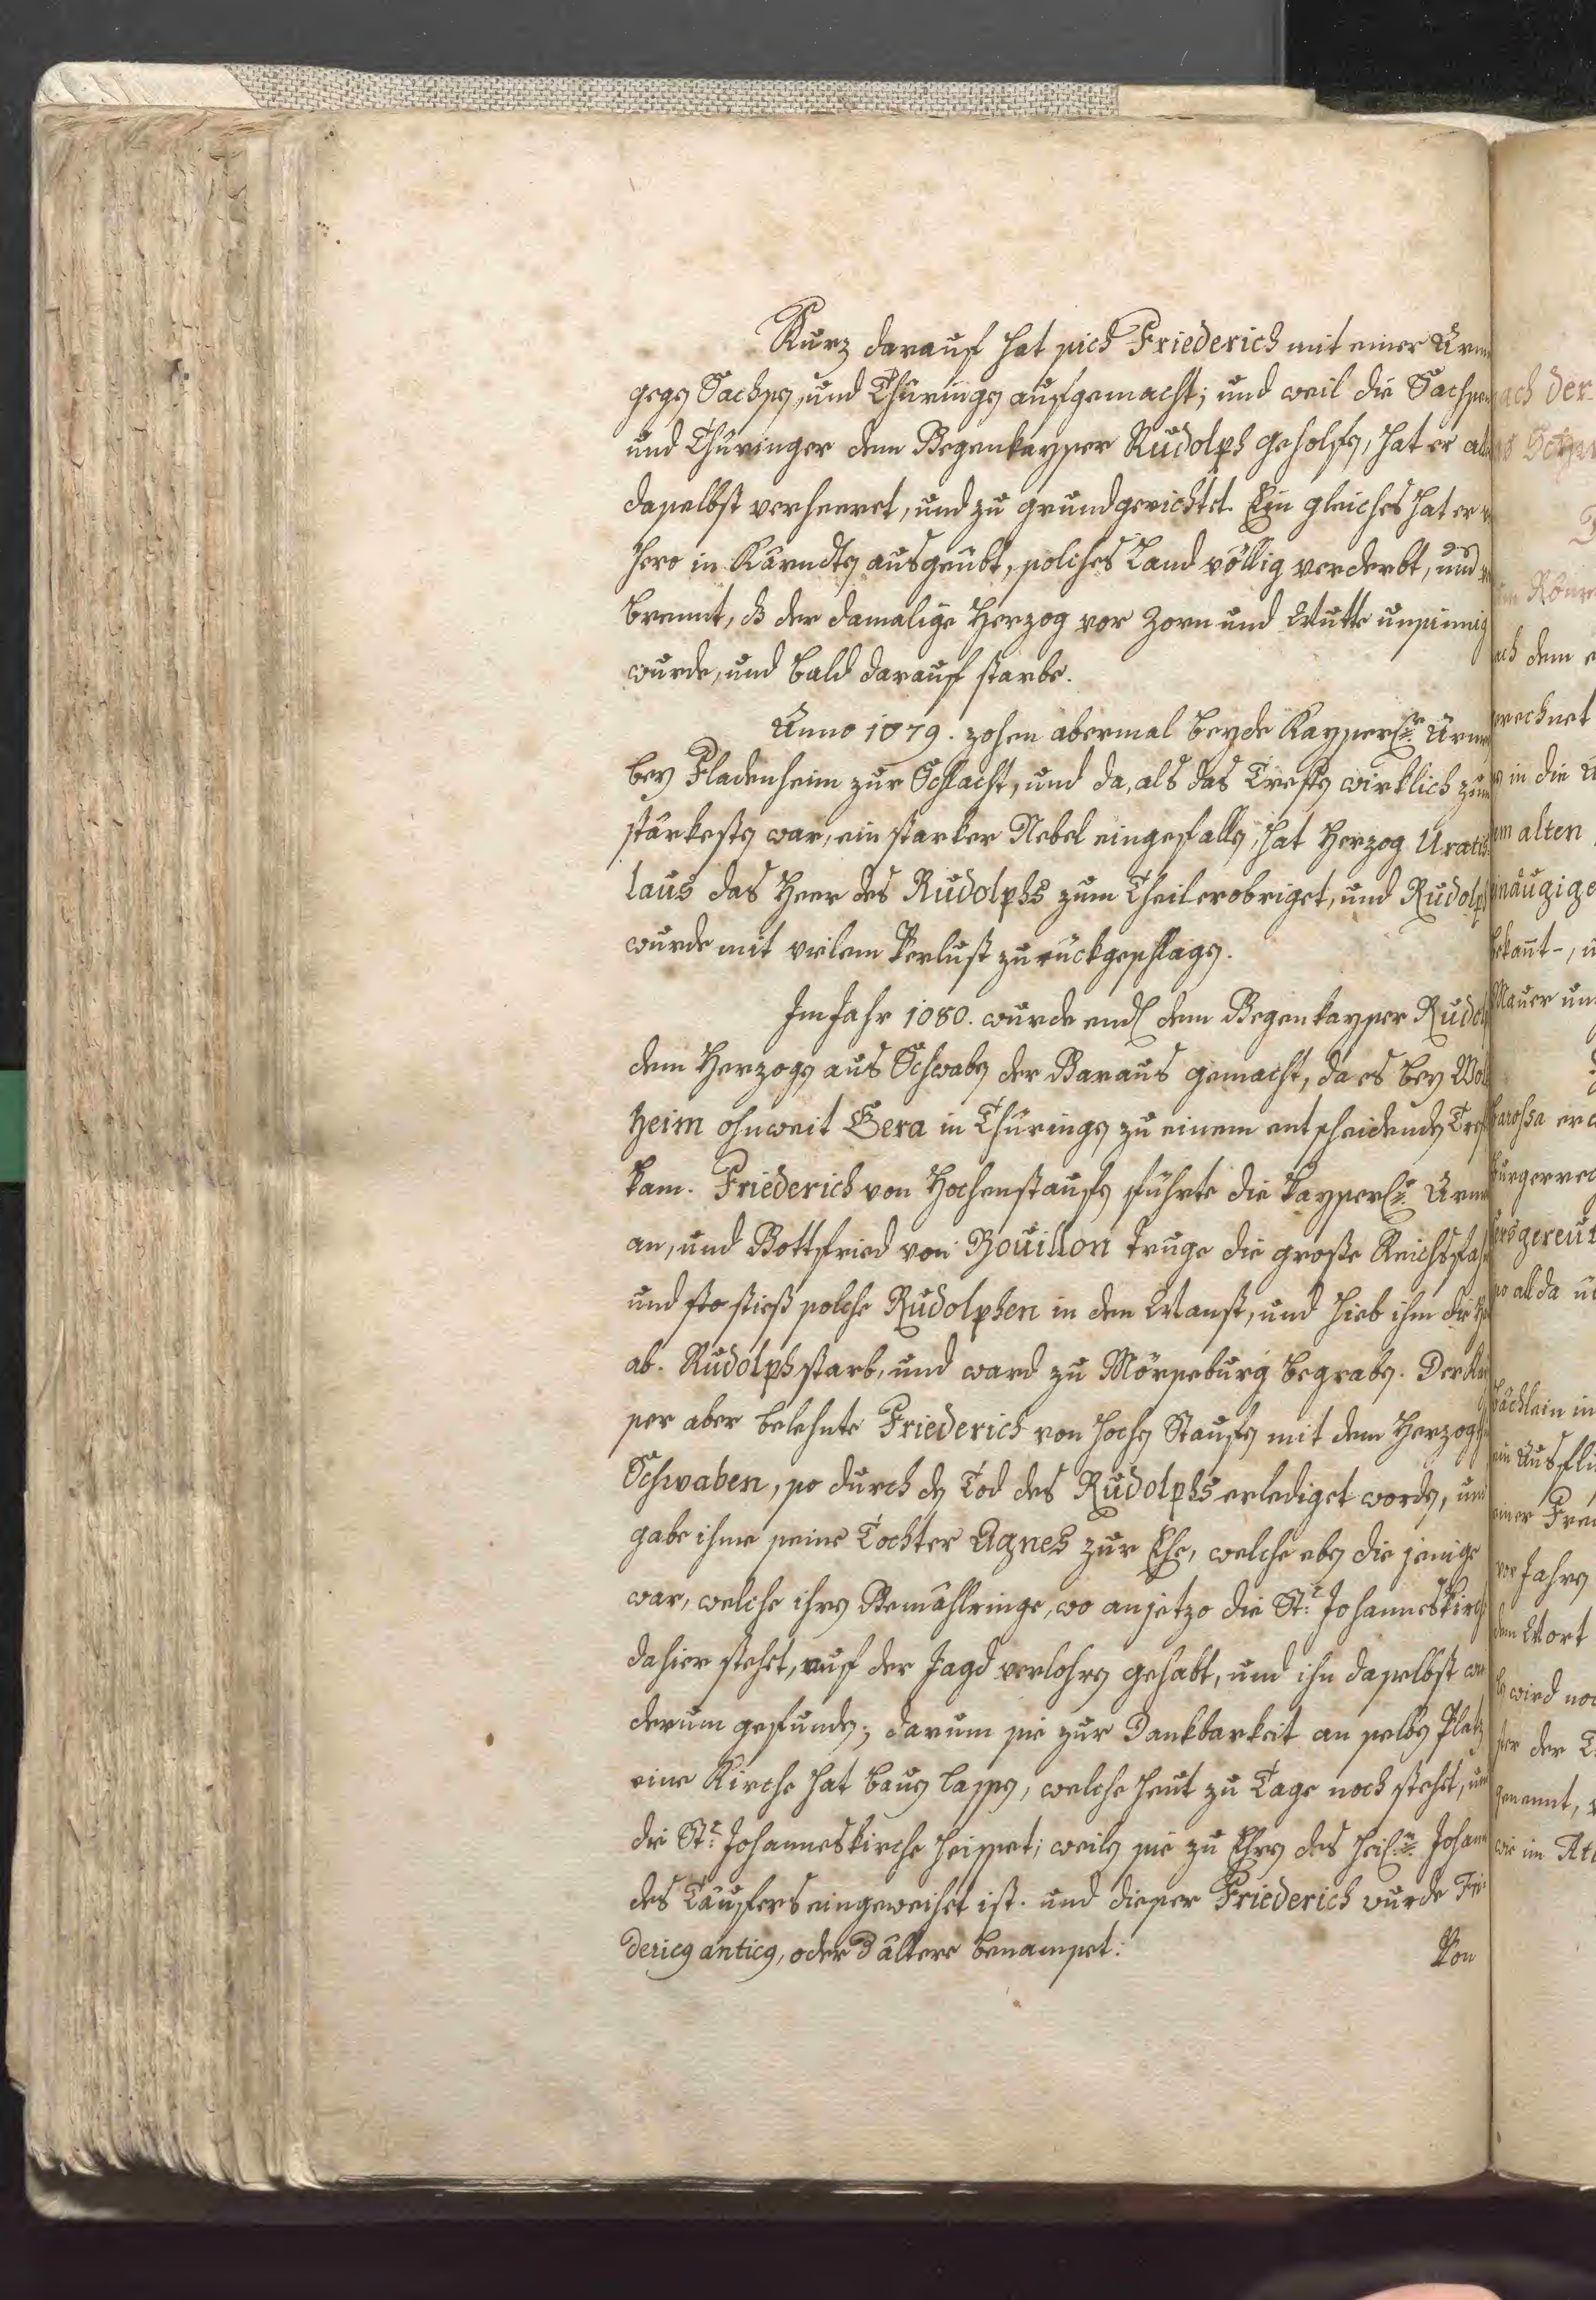 Kurz darauf hat sich Friederich mit einer Arm
gegen Sachsen, und Thüringen aufgemacht; und weil die Sachsen
und Thüringer dem Gegenkayser Rudolph geholfen, hat er all
daselbst verheeret, und zu grund gerichtet. Ein gleiches hat er
hero in Kärndten ausgeübt, solches Land völlig verderbt, und
brennt, dß der damalige Herzog vor Zorn und Wutte unsinnig
wurde, und bald darauf starbe.
Anno 1079. zohen abermal beyde Kayserl. Arm
bey Fladenheim zur Schlacht, und da, als das Treffen wirklich zum
stärkesten war, ein starker Nebel eingefallen, hat Herzog Uratis
laus das Heer des Rudolphs zum Theil erobriget, und Rudolph
wurde mit vielem Verlust zurückgeschlagen.
Im Jahr 1080. wurde endl. dem Gegenkayser Rudol
dem Herzogen aus Schwaben der Garaus gemacht, da es bey Wol
heim ohnweit Gera in Thüringen zu einem entscheidenden Tref
kam. Friederich von Hochenstaufen führte die Kayserl. Arm
an, und Gottfried von Bouillon truge die große Reichsfah
und stieß solche Rudolphen in den Wanst, und hieb ihm die
ab. Rudolph starb, und ward zu Mörseburg begraben. Der Kay
ser aber belehnte Friederich von Hochen Staufen mit dem Herzogth
Schwaben, so durch den Tod des Rudolphs erlediget worden, und
gabe ihme seine Tochter Agnes zur Ehe, welche eben die jenige
war, welche ihren Gemählringe, wo anjetzo die St. Johanneskirch
dahier stehet, auf der Jagd verlohren gehabt, und ihn daselbst wie
derum gefunden; darum sie zur Dankbarkeit an selben Platz
eine Kirche hat bauen lassen, welche heut zu Tage noch stehet, und
die St. Johanneskirche heisset; weilen sie zu Ehren des heil. Johann
des Täufers eingeweihet ist. und dieser Friederich wurde Fri
dericus anticus, oder d ältere benamset.
Von